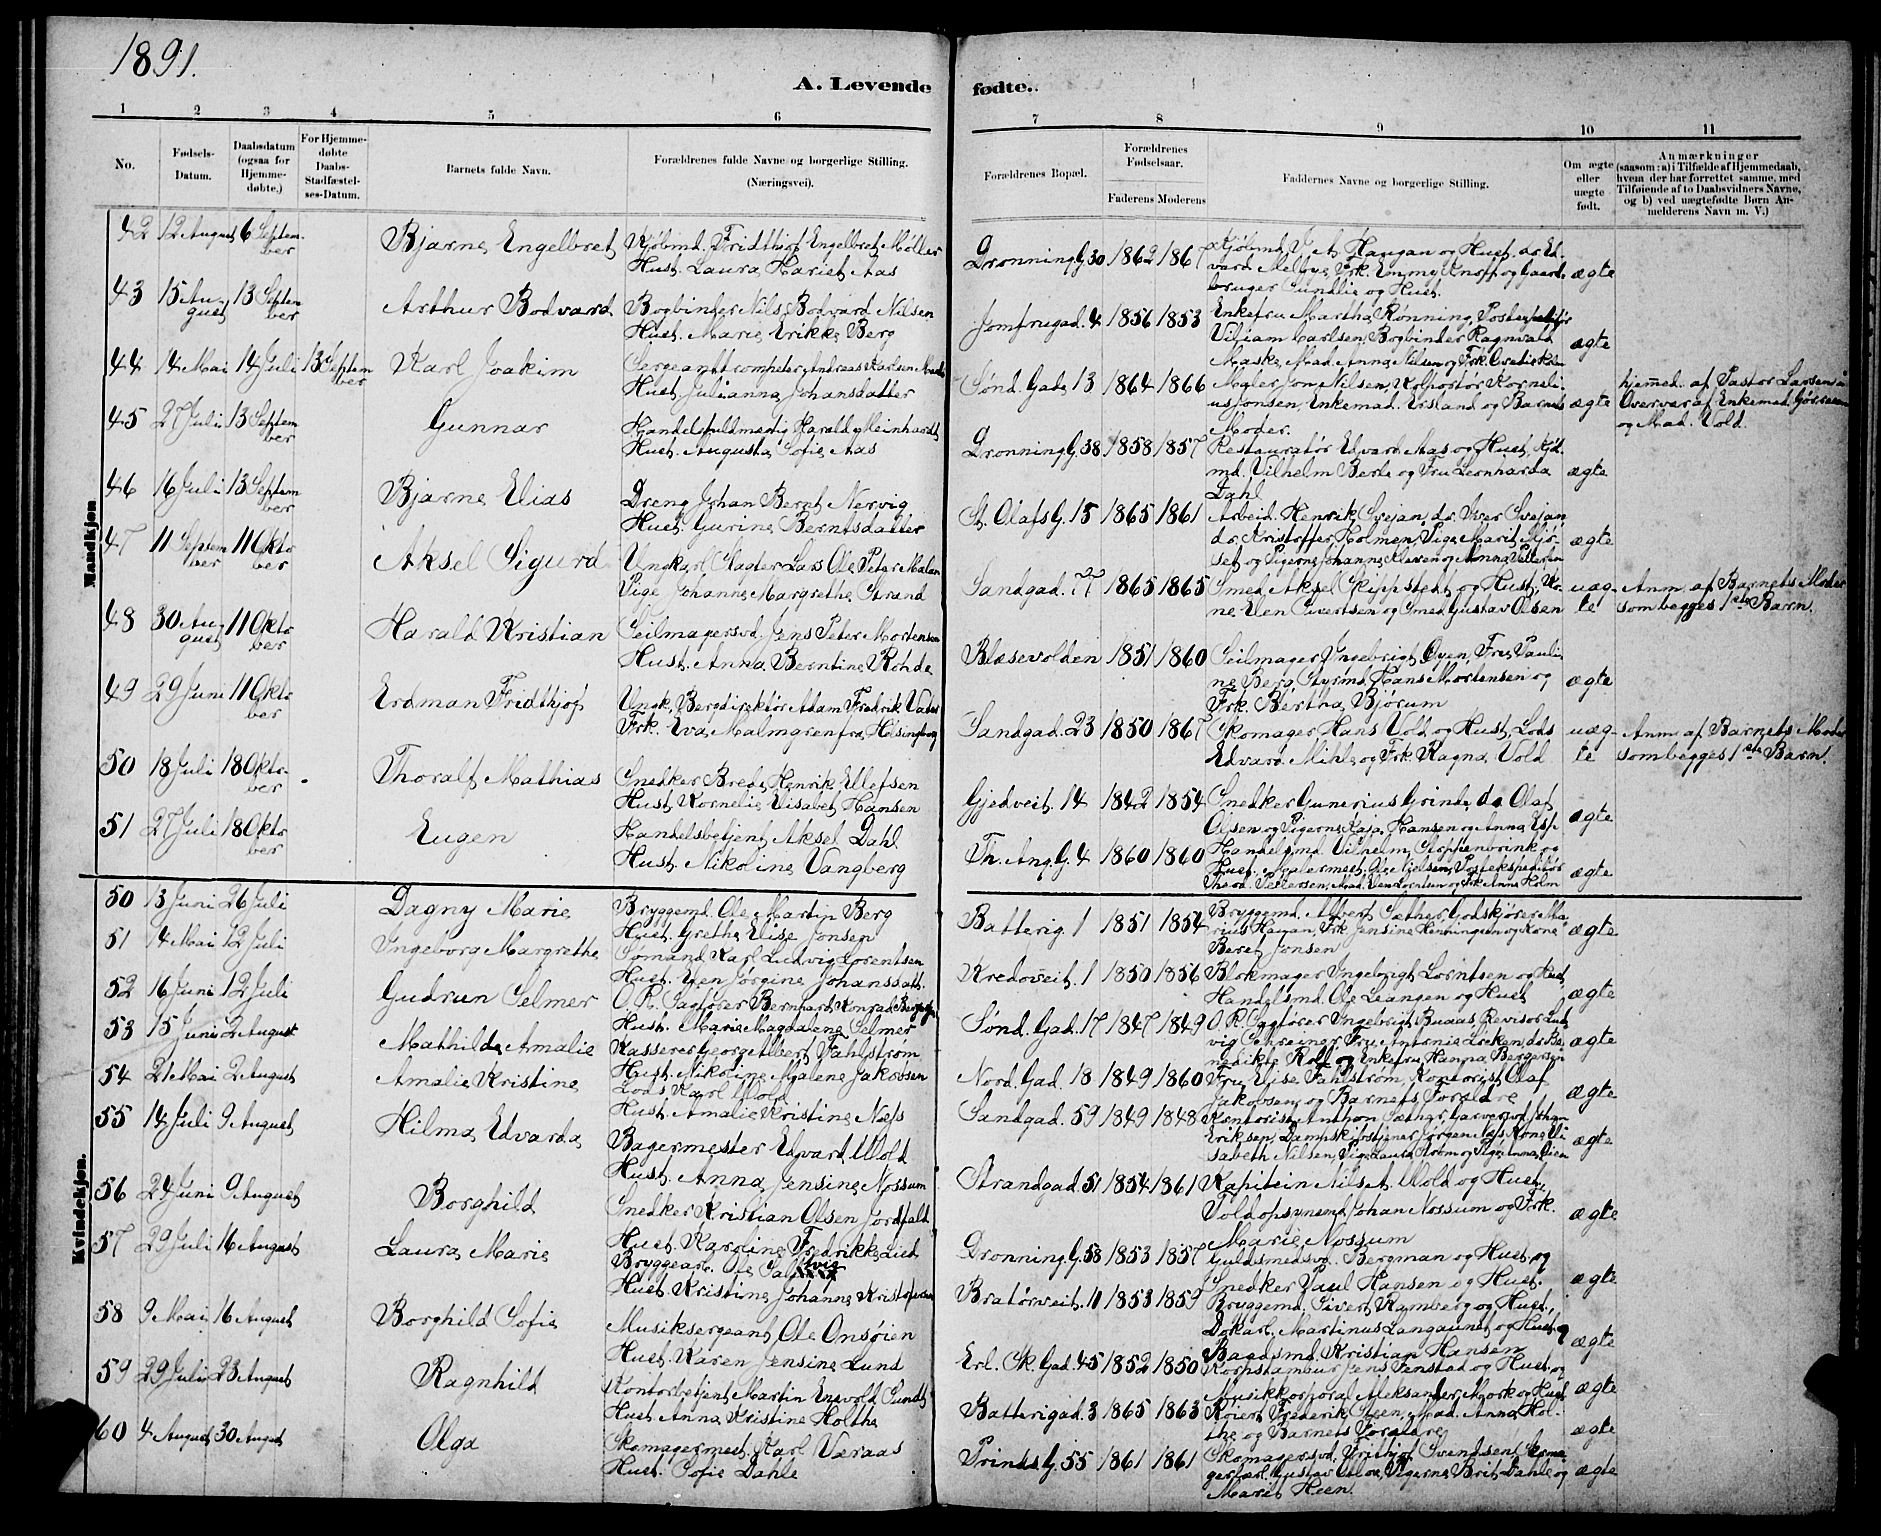 1891.
A. Levende fødte.
1 2 3 4 5 6 7 8 9 10 11
No.
Fødsels-Datum.
Daabsdatum (ogsaa for Hjemme-døbte.)
For Hjemme-døbte Daabs-Stadfæstel-ses-Datum.
Barnets fulde Navn.
Forældrenes fulde Navne og borgerlige Stilling. (Næringsvei).
Forældrenes Bopæl.
Forældrenes Fødselsaar.
Faderens Moderens
Faddernes Navne og borgerlige Stilling.
Om ægte eller uægte født.
Anmærkninger (saasom: a) i Tilfælde af Hjemmedaab, hvem der har forrettet samme, med Tilføiende af to Daabsvidners Navne, og b) ved uægtefødte Børn An-melderens Navn m. V.)
Mandkjøn
42 12 August 6 September Bjarne Engelbret
Kjøbmd. Fridthjof Engelbret Møller
Hust. Laura Hariet Aas
Dronning G. 30 1862 1867
Kjøbmd. J. A. Haugan og Hust., do. Ed-
vard Melbye, Frk. Emmy Knoff og Gaard-
bruger Sundlie og Hust.
ægte
43 15 August 13 September Arthur Bodvard
Bogbinder Nils Bodvard Nilsen
Hust. Marie Erikke Berg
Jomfrugad. 4 1856 1853
Enkefru Martha Rønning,
Viliam Carlsen, Bogbinder Ragnvald
Maske, Mad. Anna Nilsen og Frk.
ægte
44 14 Mai 14 Juli 13 September Karl Joakim
Sergeanttrompeter Andreas Karlsen
Hust. Julianna Johansdatter
Sønd. Gade 13 1864 1866
Maler Jon Nilsen, Kolportør Korneli-
us Jonsen, Enkemad. Ersland og Barnets
Moder.
ægte
hjemmed. af Pastor Larsen i
Overvær af Enkemad.
og Mad. Vold.
45 27 Juli 13 September Gunnar
Handelsfuldmægtig Harald Meinhardt
Hust. Augusta Sofie Aas
Dronning G. 38 1858 1857
Restauratør Edvard Aas og Hust., Kjb.
md. Vilhelm Berle og Fru Leonharda
Dahl
ægte
46 16 Juli 13 September Bjarne Elias
Dreng Johan Bernt Nervig
Hust. Gurine Berntsdatter
St. Olafs G. 15 1865 1861
Arbeid. Henrik Svejan, do. Iver Svejan
do. Kristoffer Holmen, Pige Marit Mjø-
set og Pigerne Johanne Klæven og Anna Pettersen
ægte
47 11 September 11 Oktober Aksel Sigurd
Ungkarl Slagter Lars Ole Peter Malan
Pige Johanne Margrethe Strand
Sandgad. 77 1865 1865
Smed Aksel Skippstedt og Hust., Ko-
ne Elen Sivertsen og Smed Gustav Olsen
uægte
Anm. af Barnets Moder
som begges 1ste Barn.
48 30 August 11 Oktober Harald Kristian
Seilmagersvd. Jens Peter Mortensen
Hust. Anna Berntine Rohde
Blæsevolden 1851 1860
Seilmager Ingebrigt Øyen, Frk. Pauli-
ne Berg, Styrmd. Hans Mortensen og
Frk. Bertha Bjørum
ægte
49 29 Juni 11 Oktober Erdman Fridthjof
Ungk. Bergdirektør Adam Fredrik
Frk. Eva Malmgren fra Helsingborg
Sandgad. 23 1850 1867
Skomager Hans Vold og Hust., Lods
Edvard Mihle og Frk. Ragna Vold
uægte
Anm. af Barnets Moder
som begges 1ste Barn.
50 18 Juli 18 Oktober Thoralf Mathias
Snedker Brede Henrik Ellefsen
Hust. Kornelie Elisabet Hansen
Gjedveit. 14 1842 1854
Snedker Gunerius Grinde, do. Olaf
Olsen og Pigerne Kaja Hansen og Anna Esp
ægte
51 27 Juli 18 Oktober Eugen
Handelsbetjent Aksel Dahl
Hust. Nikoline Vangberg
Th. Ang. G. 4 1860 1860
Handelsmd. Vilhelm Stoppenbrink og
Hust., Malermest. Ole Nielsen, Postekspeditør
Thorv. Pettersen, Mad. Elen Lorntsen og Frk. Anna Holm
ægte
Kvindekjøn.
50 13 Juni 26 Juli Dagny Marie
Bryggemd. Ole Martin Berg
Hust. Grethe Elise Jonsen
Batterig. 1 1851 1854
Bryggemd. Albert Sæther, Godskjører Ma-
rius Haugan, Frk. Jensine Henningsen og Kone
Beret Jonsen
ægte
51 14 Mai 12 Juli Ingeborg Margrethe
Sømand Karl Ludvig Lorentsen
Hust. Elen Jørgine Johansdatt.
Kredoveit. 1 1850 1856
Blokmager Ingebrigt Lorntsen og Hust.
Handelsmd. Ole Leangen og Hust.
ægte
52 16 Juni 12 Juli Gudrun Selmer
O. R. Sagfører Bernhard Konrad Bergersen
Hust. Marie Magdalene Selmer
Sønd. Gad. 17 1847 1849
O. R. Sagfører Ingebrigt Buaas, Revisor Lud-
vig Schreiner, Fru Antonie Løken, do. Be-
nedikte Roll og Enkefru Hanna Bergersen
ægte
53 15 Juni 2 August Mathilde Amalie
Kasserer Georg Albert Fahlstrøm
Hust. Nikoline Malene Jakobsen
Nord. Gad. 18 1849 1860
Fru Elise Fahlstrøm, Kontorist Olaf
Jakobsen og Barnets Forældre
ægte
54 21 Mai 2 August Amalie Kristine
Lods Karl Wold
Hust. Amalie Kristine Næss
Sandgad. 59 1849 1848
Kontorist Anthon Sæther, Garversvd. Johan
Eriksen, Dampskibstjener Jørgen Næs, Kone Eli-
sabeth Nilsen, Pige Laura Strøm og Pige Anna Lien
ægte
55 14 Juli 9 August Hilma Edvarda
Bagermester Edvard Wold
Hust. Anna Jensine Nossum
Strandgad. 51 1854 1861
Kapitein Nils A. Wold og Hust.,
Toldopsynsmd. Johan Nossum og Frk.
Marie Nossum
ægte
56 24 Juni 9 August Borghild
Snedker Kristian Olsen Jordfald
Hust. Karoline Fredrikke Liet
Dronning G. 58 1853 1857
Guldsmedsvd. Bergman og Hust. og
Snedker Paul Hansen og Hust.
ægte
57 29 Juli 16 August Laura Marie
Bryggearb. Ole
Hust. Kristine Johanne Kristofersen
Bratørveit. 11 1853 1859
Bryggemd. Sivert Ramberg og Hust.,
Dokarl. Martinus Langaunet og Hust. og
Baadsmd. Kristian Hansen
ægte
58 9 Mai 16 August Borghild Sofie
Musiksergeant Ole Onsøien
Hust. Karen Jensine Lund
Erl. Sk. Gad. 45 1852 1850
Korpstambur Jens Fenstad og Hust. og
Musikkorporal Aleksander Mork og Hust.
ægte
59 29 Juli 23 August Ragnhild
Kontorbetjent Martin Enevold Sundt
Hust. Anna Kristine Holthe
Batterigad. 3 1865 1863
Roiert Frederik Steen, Mad. Anna Hol-
the og Barnets Forældre
ægte
60 4 August 30 August Olga
Skomagermest. Karl Væraas
Hust. Sofie Dahle
Prinds G. 55 1861 1861
Skomagersvd. Frithjof Svendsen,
Gustav Moe, Pigerne Brit Dahle og
Marit Heen.
ægte